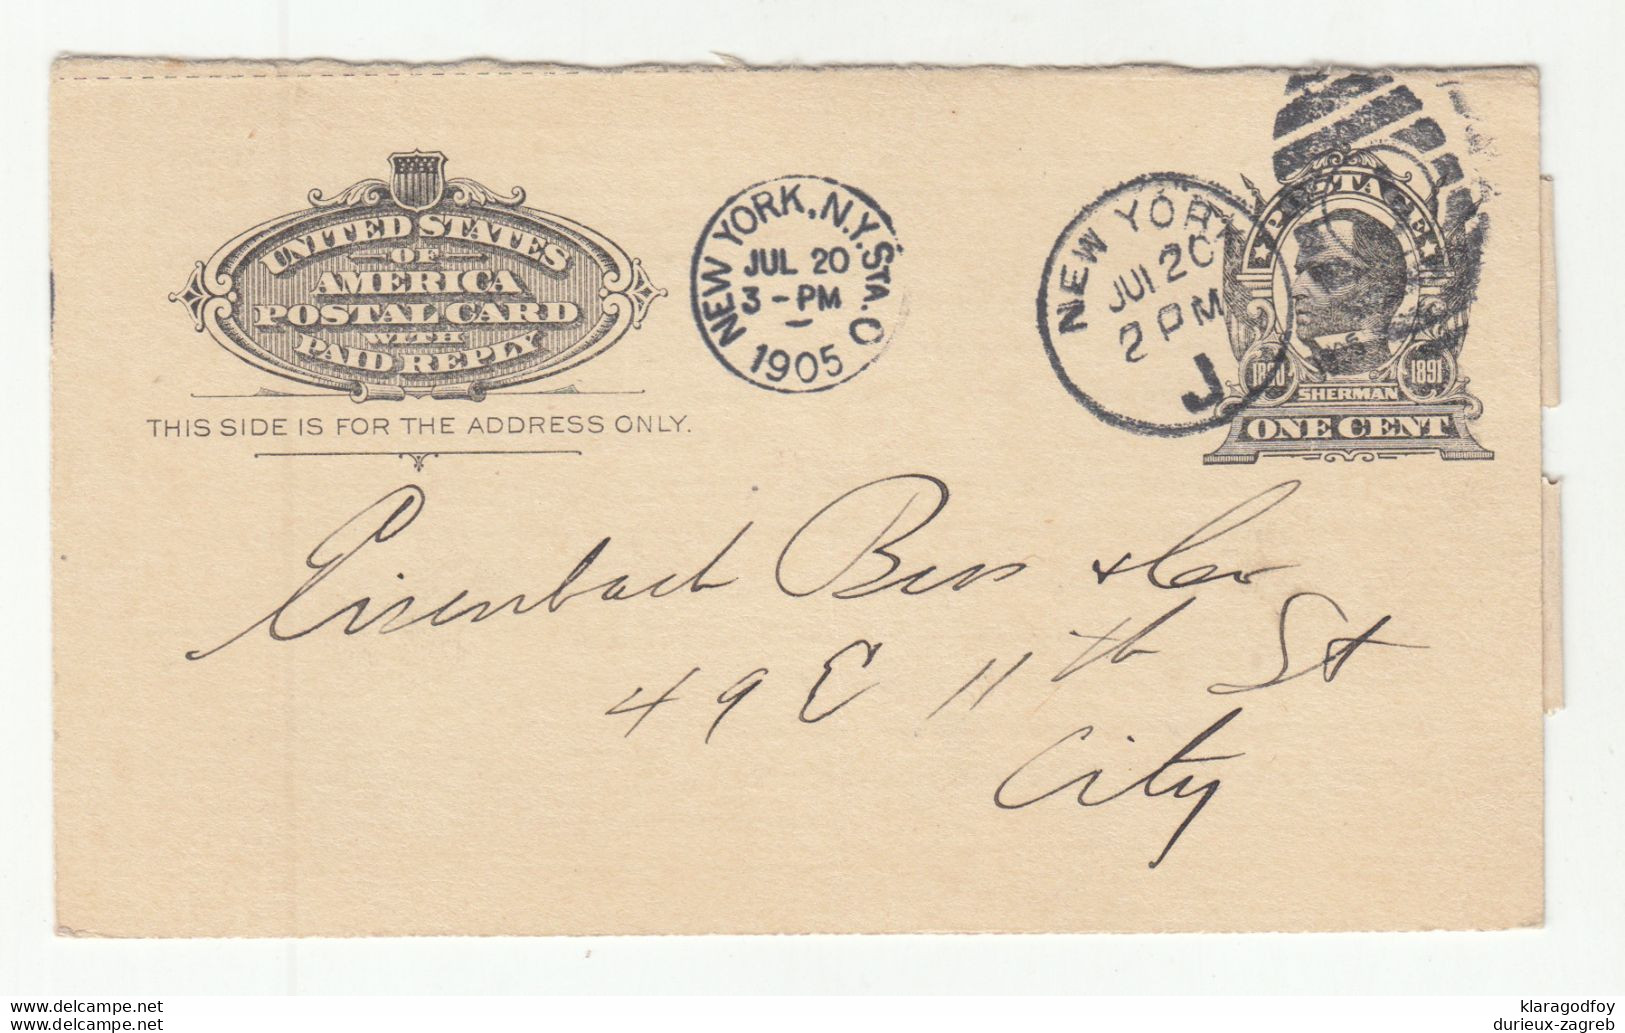 UNITED STATES
OF
AMERICA
POSTAL CARD
WITH
PAID REPLY
THIS SIDE IS FOR THE ADDRESS ONLY.
NEW YORK, N.Y. STA. O
JUL 20
3-PM
1905
NEW YORK
JUL 20
2 PM
J
POSTAGE
1820 1891
SHERMAN
ONE CENT
Eisenbach Bros & Co
49 E 11th St
City
klaragodfoy
durieux-zagreb
delcampe.net
delcampe.net